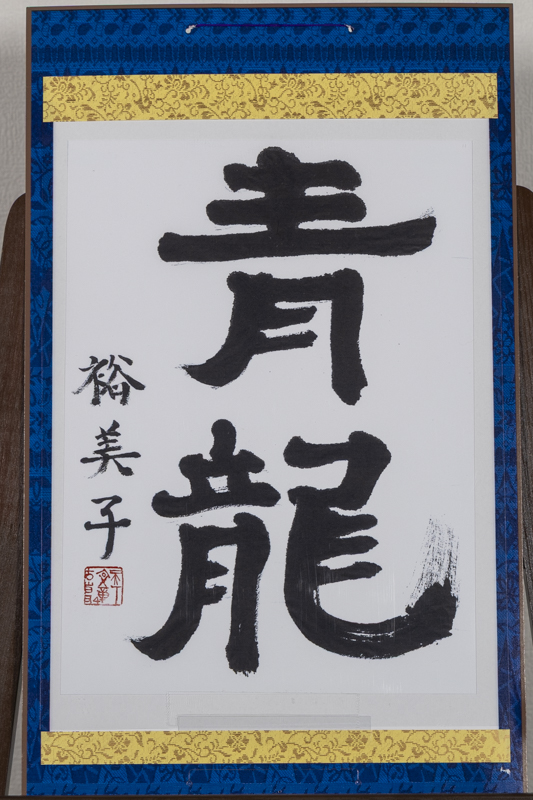 青龍
裕美子